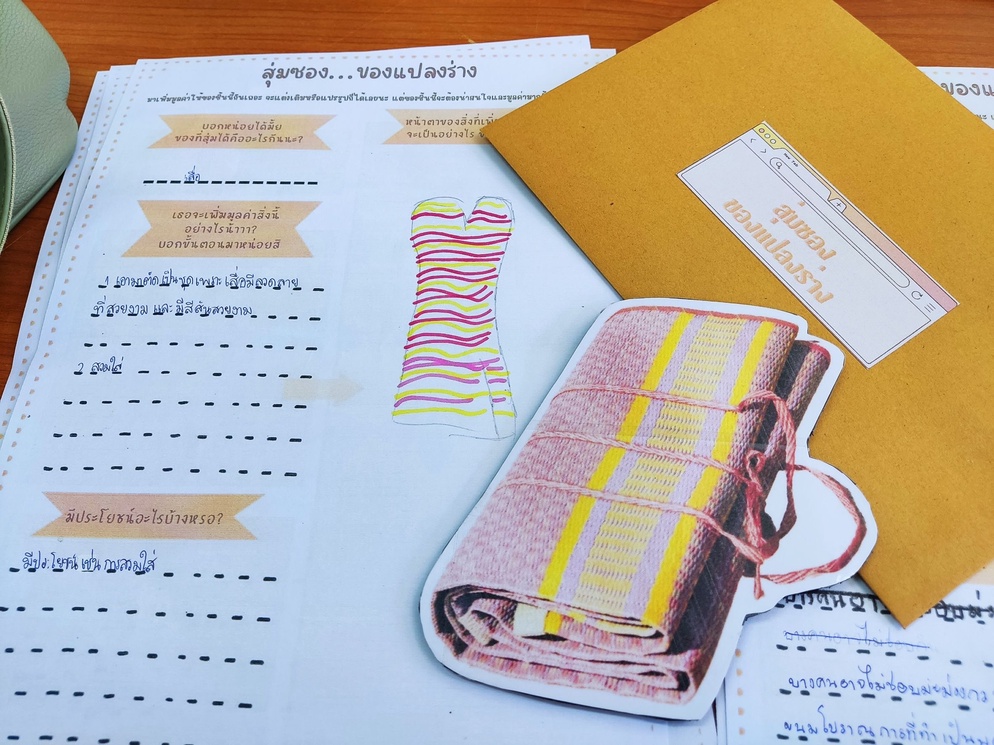 สุ่มซอง...ของแปลงร่าง
มาเพิ่มมูลค่าให้ของชิ้นนี้กันเถอะ จะแต่งเติมหรือแปรรูปก็ได้เลยนะ แต่ของชิ้นนี้จะต้องน่าสนใจและมูลค่ามาก
บอกหน่อยได้มั้ย
ของที่สุ่มได้คืออะไรกันนะ?
เสื่อ
เธอจะเพิ่มมูลค่าสิ่งนี้
อย่างไรน้าาา?
บอกขั้นตอนมาหน่อยสิ
1 เอามาตัดเป็นชุด เพราะ เสื่อมีลวดลาย
ที่สวยงาม และ มีสีสันสวยงาม
2 สวมใส่
มีประโยชน์อะไรบ้างหรอ?
มีประโยชน์ เช่น การสวมใส่
หน้าตาของสิ่งที่เพิ่
จะเป็นอย่างไร
New Tab
สุ่มซอง
ของแปลงร่าง
บางคนอาจไม่ชอบ
ขนมโบราณ การที่ทำเป็น